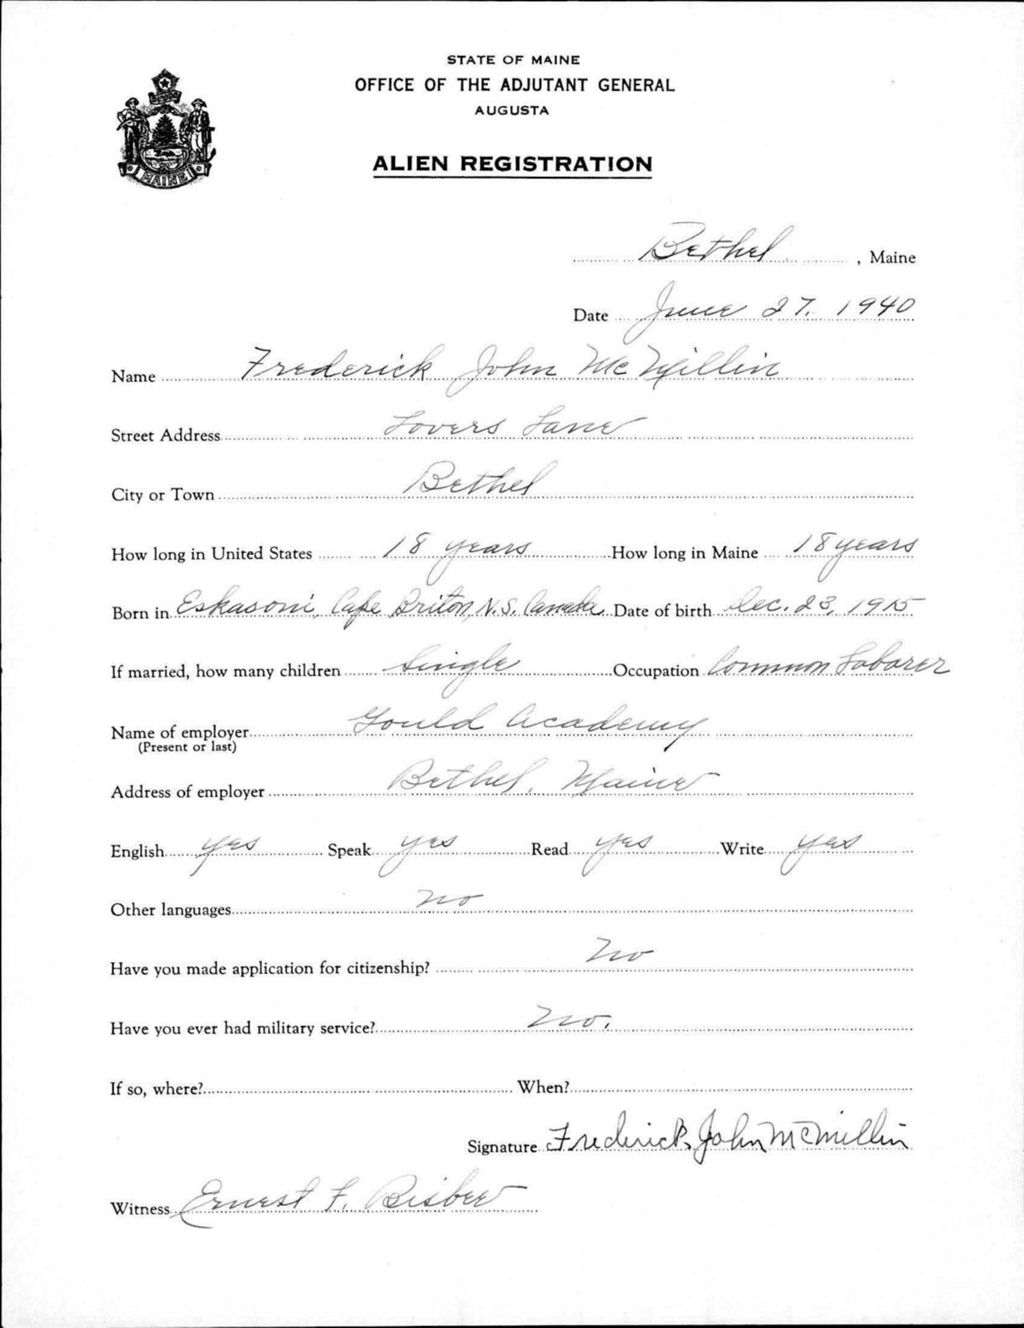 STATE OF MAINE
OFFICE OF THE ADJUTANT GENERAL
AUGUSTA
ALIEN REGISTRATION
MAINE
Bethel, Maine
Date June 27, 1940
Name Frederick John McMillin
Street Address Lovers Lane
City or Town Bethel
How long in United States 18 years How long in Maine 18 years
Born in Eskasoni, Cape Briton, N.S. Canada Date of birth Dec. 23, 1915
If married, how many children Single Occupation Common Laborer
Name of employer Gould Academy
(Present or last)
Address of employer Bethel, Maine
English yes Speak yes Read yes Write yes
Other languages no
Have you made application for citizenship? No
Have you ever had military service? No.
If so, where? When?
Signature Frederick John McMillin
Witness Ernest F. Bisbee